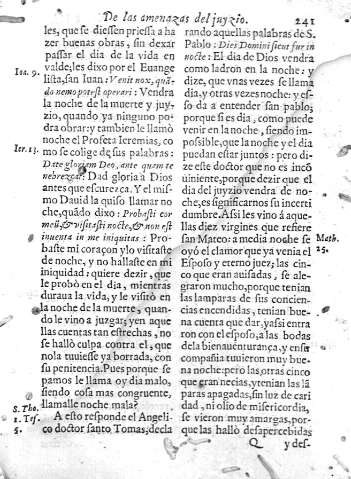 De las amenazas del juyzio. 241
les, que se diessen priessa a ha
zer buenas obras, sin dexar
passar el dia de la vida en
valde; les dixo por el Euange
Ioa. 9.
lista, san Iuan: Venit nox, quã-
do nemo potest operari: Vendra
la noche de la muerte y juy-
zio, quando ya ninguno po-
dra obrar: y tambien le llamò
noche el Profeta Ieremias, co
Ier. 13.
mo se colige de sus palabras:
Date gloriam Deo, ante quam te
nebrezcat: Dad gloria a Dios
antes que escurezca. Y el mis-
mo Dauid la quiso llamar no
che, quãdo dixo: Probasti cor
meũ, & visitasti nocte, & non est
inuenta in me iniquitas: Pro-
baste mi coraçon y lo visitaste
de noche, y no hallaste en mi
iniquidad: quiere dezir, que
le probò en el dia, mientras
duraua la vida, y le visitò en
la noche de la muerte, quan-
do le vino a juzgar; y en aque
llas cuentas tan estrechas, no
se hallò culpa contra el, que
no la tuuiesse ya borrada, con
su penitencia. Pues porque se
pamos le llama oy dia malo,
siendo cosa mas congruente,
llamalle noche mala?
S. Tho.
A esto responde el Angeli-
1. Tes.
5.
co doctor santo Tomas; decla
rando aquellas palabras de S.
Pablo: Dies Domini sicut fur in
nocte: El dia de Dios vendra
como ladron en la noche: y
dize, que vnas vezes se llama
dia, y otras vezes noche: y es-
so da a entender san pablo;
porque si es dia, como puede
venir en la noche, siendo im-
possible, que la noche y el dia
puedan estar juntos: pero di-
ze este doctor que no es incõ
uiniente, porque dezir que el
dia del juyzio vendra de no-
che, es significarnos su incerti
dumbre. Assi les vino á aque-
llas diez virgines que refiere
san Mateo: a media noche se
Math.
25.
oyó el clamor que ya venia el
Esposo y eterno juez; las cin-
co que eran auisadas, se ale-
graron mucho, porque tenian
las lamparas de sus concien-
cias encendidas, tenian bue
na cuenta que dar, ya si entra
ron con el esposo, a las bodas
de la bienauenturança, y en su
compañia tuuieron muy bue
na noche: pero las otras cinco
que eran necias, y tenian las lã
paras apagadas, sin luz de cari
dad, ni olio de misericordia,
se vieron muy amargas, por-
que las hallò desapercebidas
Q y des-